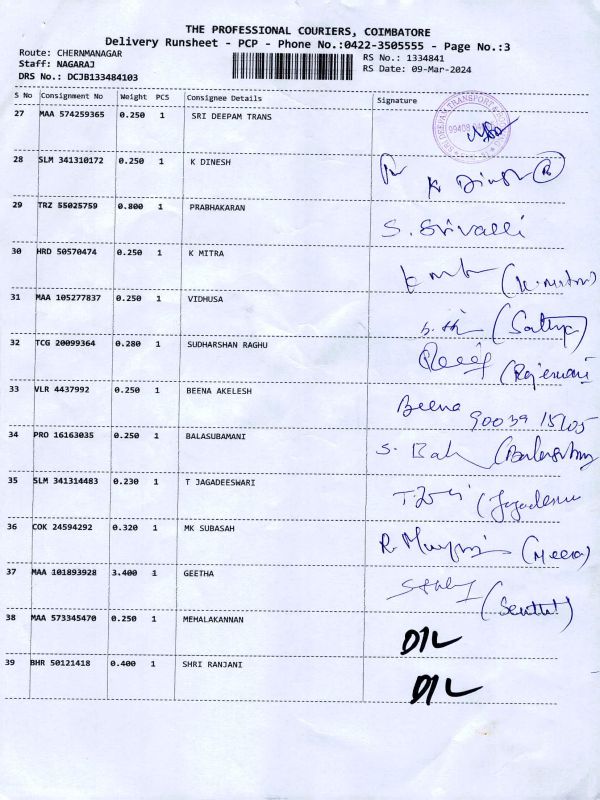 THE PROFESSIONAL COURIERS, COIMBATORE
Delivery Runsheet - PCP - Phone No.:0422-3505555 - Page No.:3
Route: CHERNMANAGAR
RS No.: 1334841
Staff: NAGARAJ
RS Date: 09-Mar-2024
DRS No.: DCJB133484103
S No Consignment No Weight PCS Consignee Details Signature
27 MAA 574259365 0.250 1 SRI DEEPAM TRANS
SRI DEEPAM TRANSPORT
28 SLM 341310172 0.250 1 K DINESH K Dinesh
29 TRZ 55025759 0.800 1 PRABHAKARAN S. Srivalli
30 HRD 50570474 0.250 1 K MITRA (K. Mitra)
31 MAA 105277837 0.250 1 VIDHUSA (Sathya)
32 TCG 20099364 0.280 1 SUDHARSHAN RAGHU (Rajeswari
33 VLR 4437992 0.250 1 BEENA AKELESH Beena 90039 15105
34 PRO 16163035 0.250 1 BALASUBAMANI S. Bal
35 SLM 341314483 0.230 1 T JAGADEESWARI
36 COK 24594292 0.320 1 MK SUBASAH (Meera)
37 MAA 101893928 3.400 1 GEETHA (Senthil)
38 MAA 573345470 0.250 1 MEHALAKANNAN D/L
39 BHR 50121418 0.400 1 SHRI RANJANI D/L